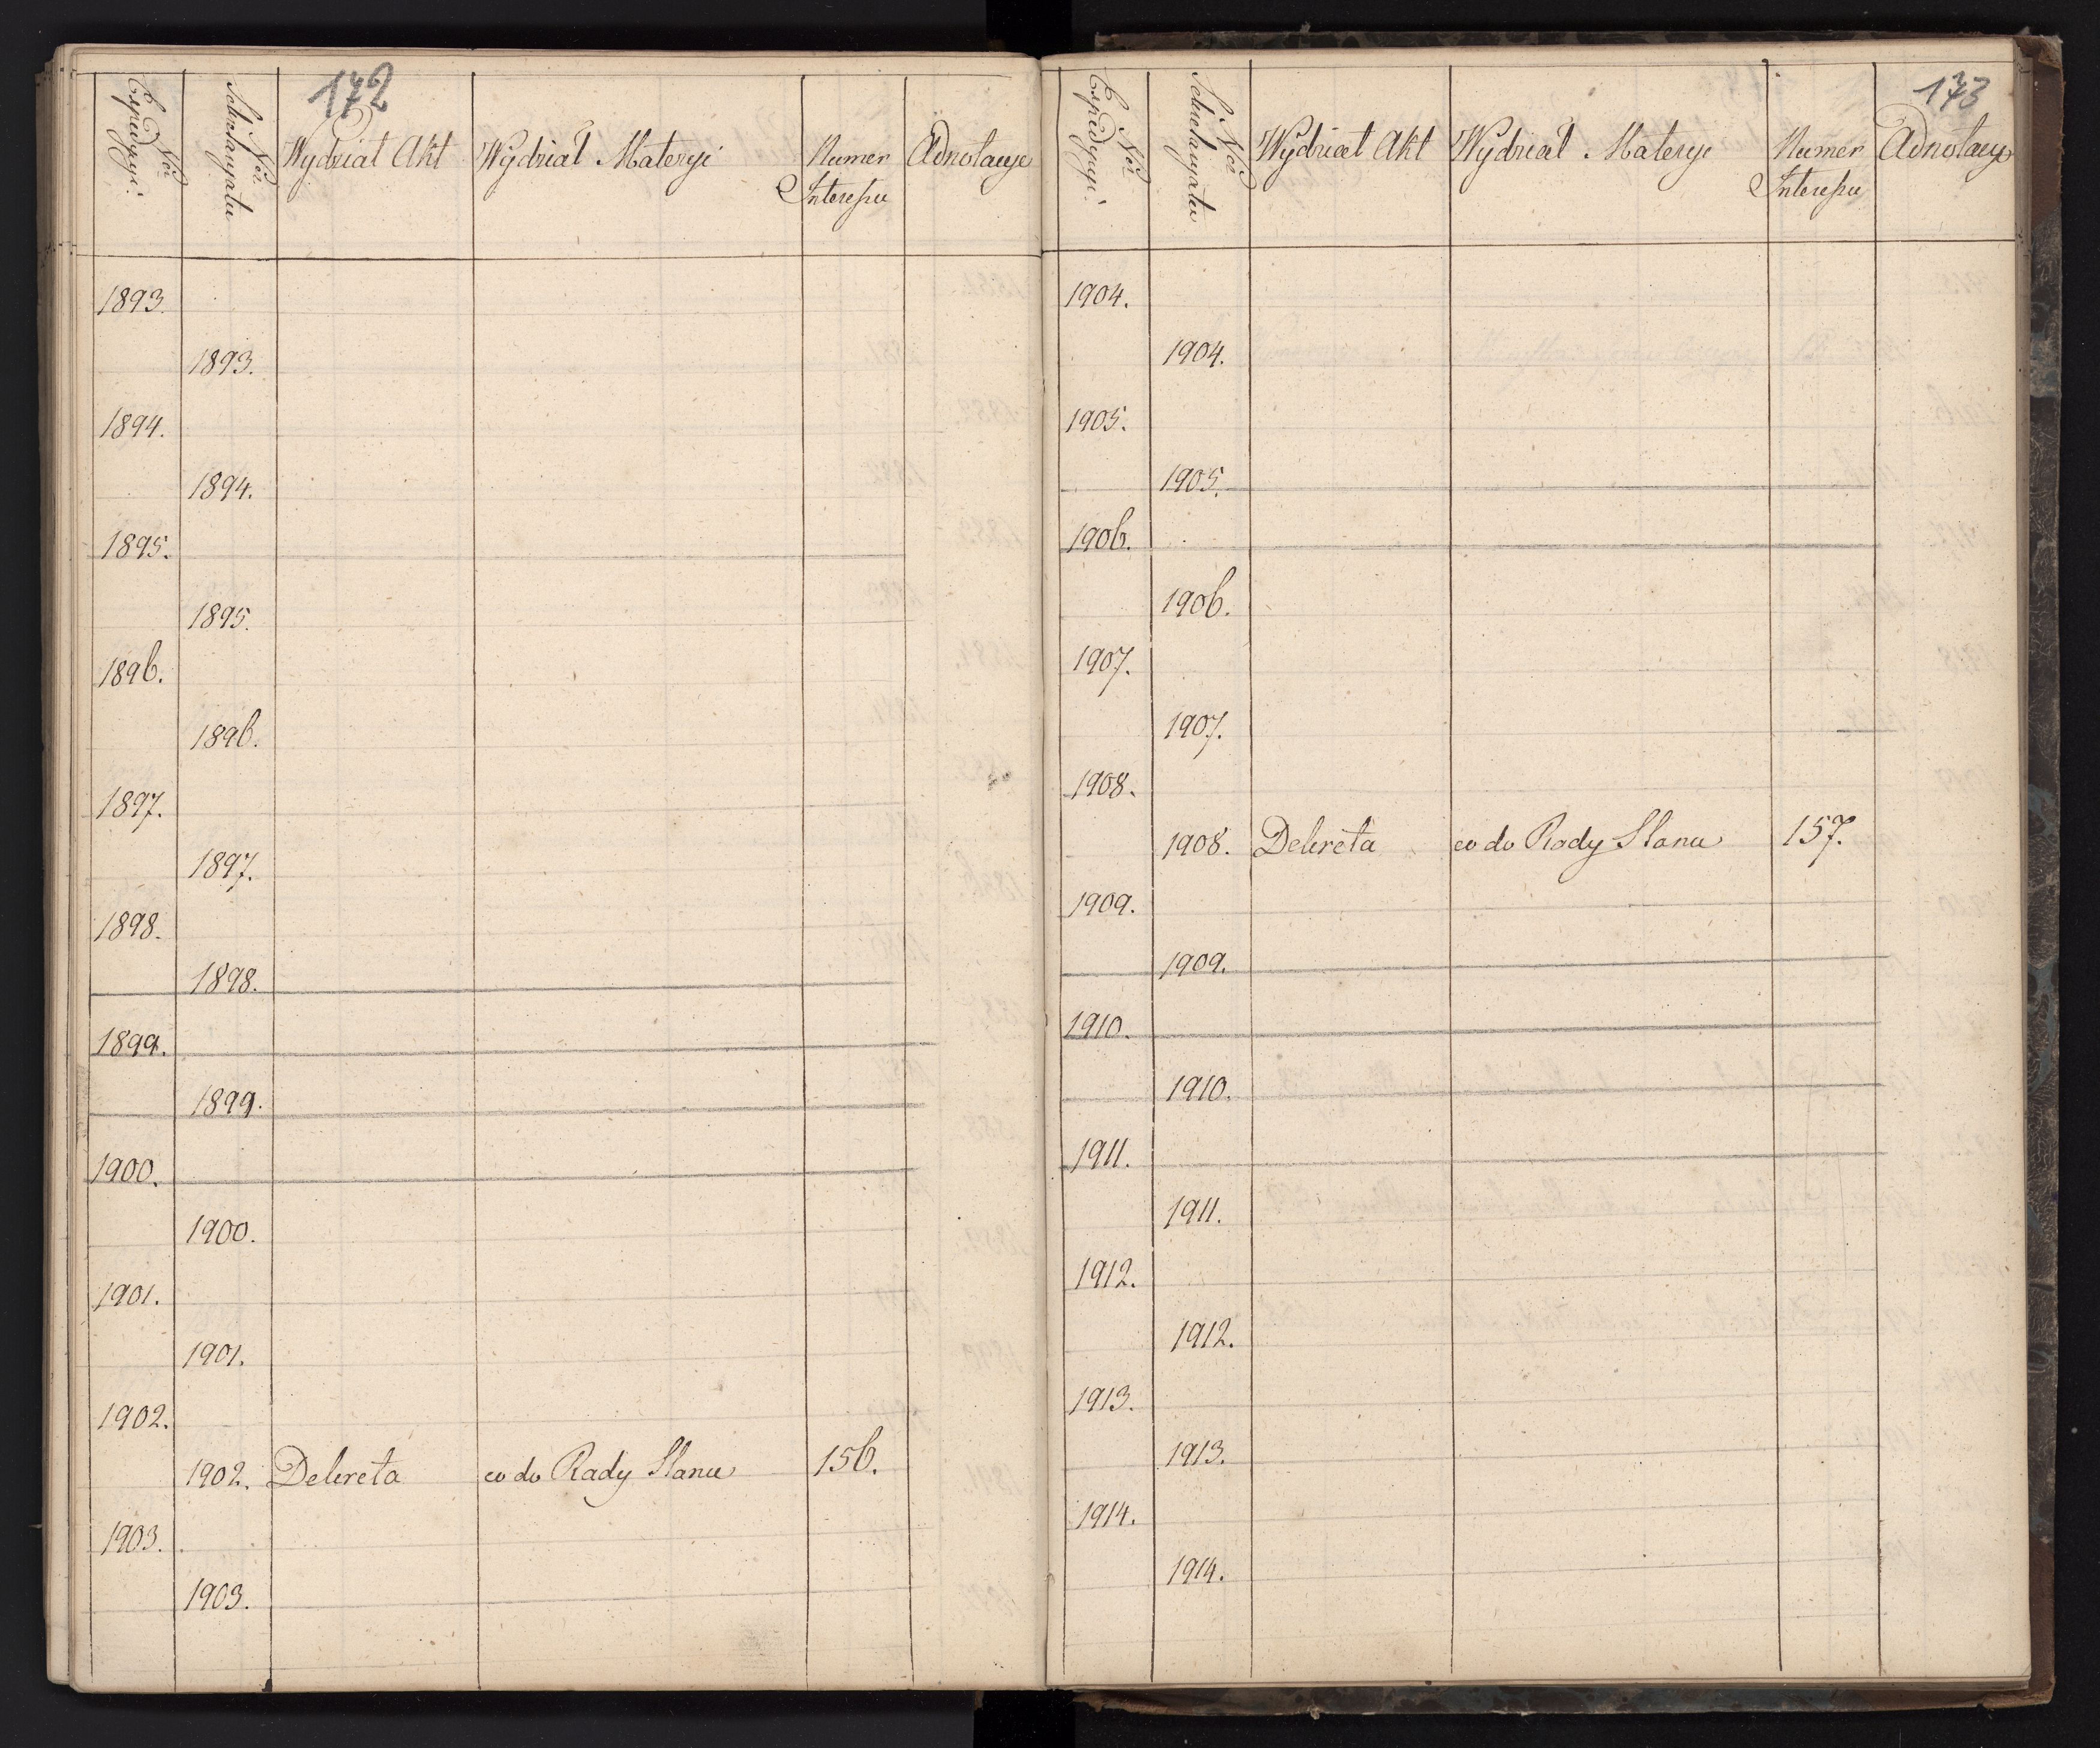 172
Nro Expedycyi
Nro Sekretaryatu
Wydział Akt
Wydział Materyi
Numer Interessu
Adnotacye
1893.
1893.
1894.
1894.
1895.
1895.
1896.
1896.
1897.
1897.
1898.
1898.
1899.
1899.
1900.
1900.
1901.
1901.
1902.
1902. Dekreta co do Rady Stanu 156.
1903.
1903.
173
Nro Expedycyi
Nro Sekretaryatu
Wydział Akt
Wydział Materyi
Numer Interessu
Adnotacye
1904.
1904.
1905.
1905.
1906.
1906.
1907.
1907.
1908.
1908. Dekreta co do Rady Stanu 157.
1909.
1909.
1910.
1910.
1911.
1911.
1912.
1912.
1913.
1913.
1914.
1914.